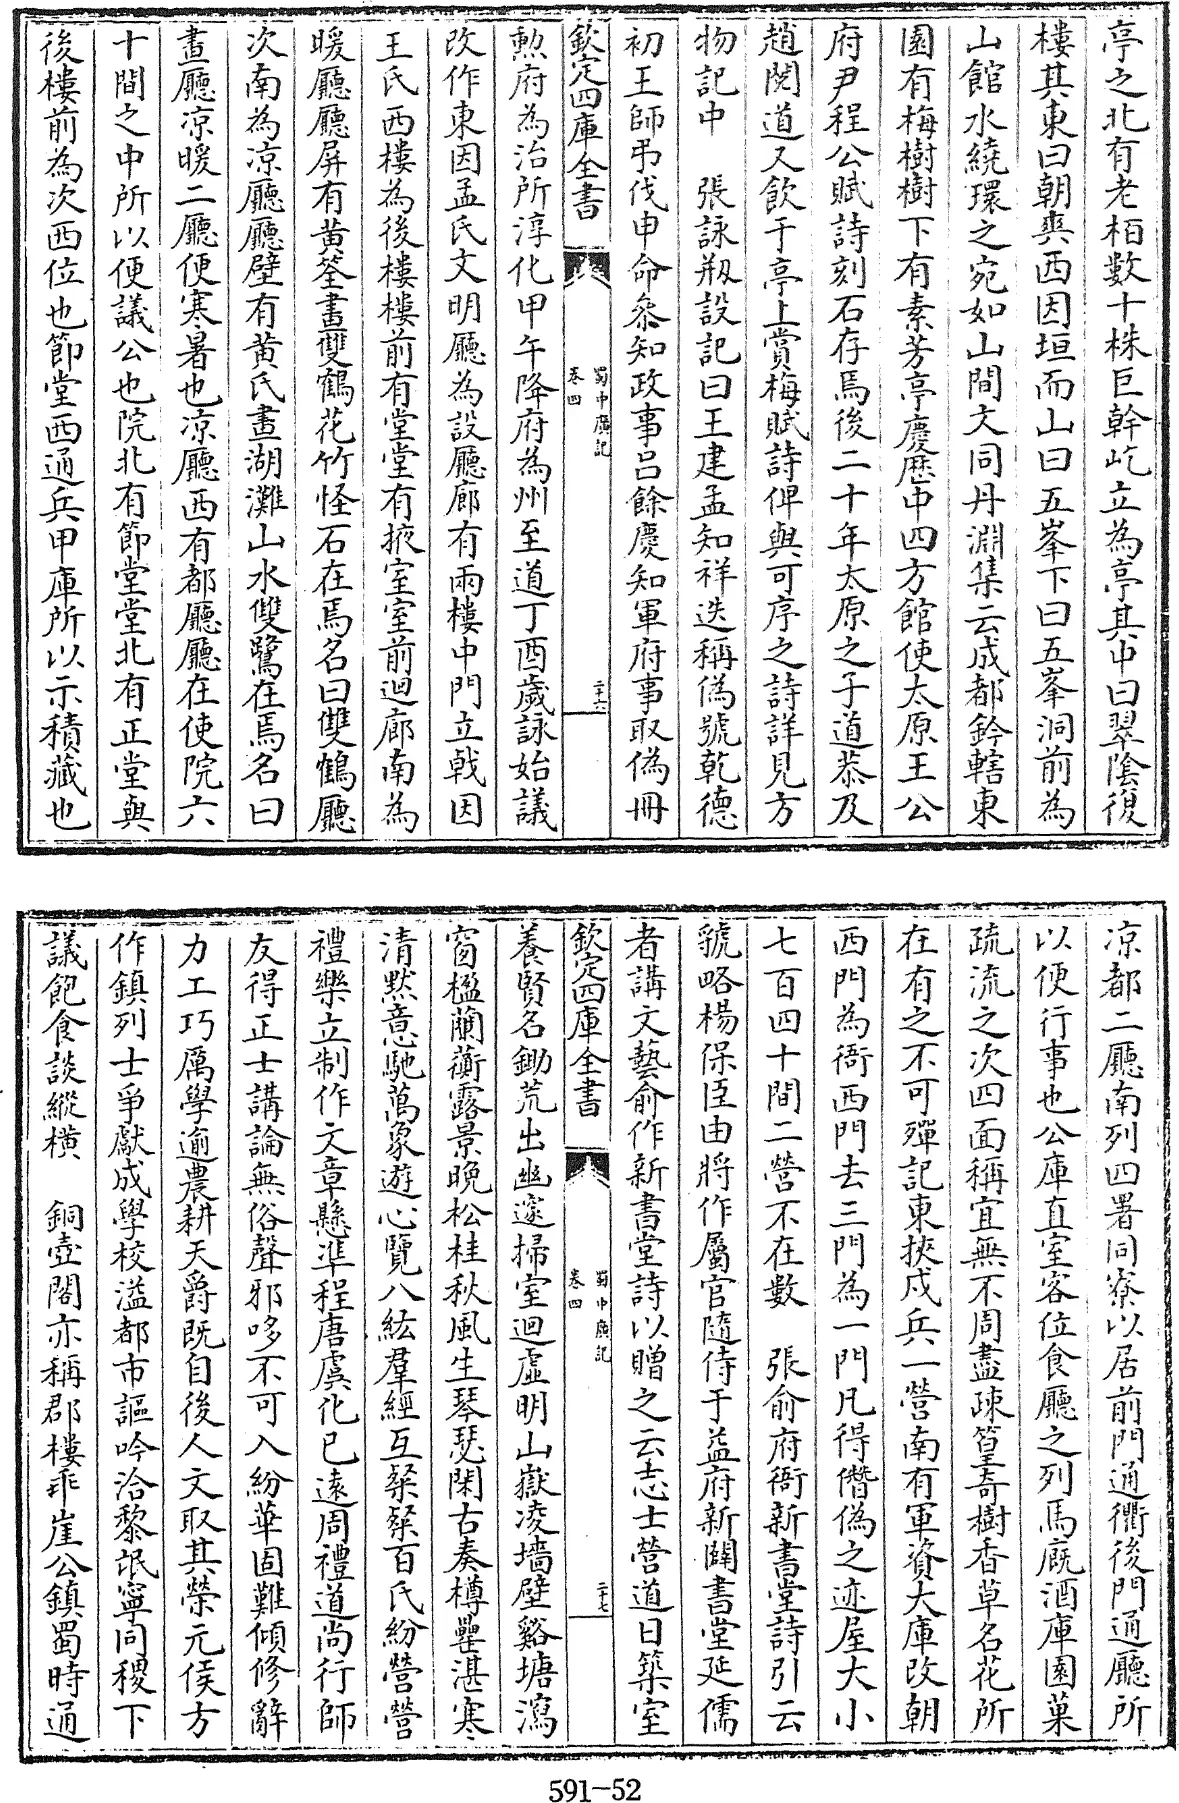 亭之北有老栢數十株巨幹屹立為亭其中曰翠陰復
樓其東曰朝爽西因垣而山曰五峯下曰五峯洞前為
山館水繞環之宛如山間文同丹淵集云成都鈐轄東
園有梅樹樹下有素芳亭慶歴中四方館使太原王公
府尹程公賦詩刻石存焉後二十年太原之子道恭及
趙閲道又飲于亭上賞梅賦詩俾與可序之詩詳見方
物記中　張詠剏設記曰王建孟知祥迭稱偽號乾德
初王師弔伐申命叅知政事吕餘慶知軍府事取偽冊
欽定四庫全書
蜀中廣記
卷四
二十六
勲府為治所淳化甲午降府為州至道丁酉歲詠始議
改作東因孟氏文明廳為設廳廊有兩樓中門立戟因
王氏西樓為後樓樓前有堂堂有掖室室前迴廊南為
暖廳廳屏有黄筌畫雙鶴花竹怪石在焉名曰雙鶴廳
次南為凉廳廳壁有黄氏畫湖灘山水雙鷺在焉名曰
畫廳凉暖二廳便寒暑也凉廳西有都廳廳在使院六
十間之中所以便議公也院北有節堂堂北有正堂與
後樓前為次西位也節堂西通兵甲庫所以示積藏也
凉都二廳南列四署同寮以居前門通衢後門通廳所
以便行事也公庫直室客位食廳之列馬廐酒庫園菓
疏流之次四面稱宜無不周盡疎篁竒樹香草名花所
在有之不可殫記東挾戍兵一營南有軍資大庫改朝
西門為衙西門去三門為一門凡得僭偽之迹屋大小
七百四十間二營不在數　張俞府衙新書堂詩引云
虢略楊保臣由將作屬官隨侍于益府新闢書堂延儒
者講文藝俞作新書堂詩以贈之云志士營道日築室
欽定四庫全書
蜀中廣記
卷四
二十七
養賢名鋤荒出幽邃掃室迴虛明山嶽凌墻壁谿塘瀉
窗楹蘭蘅露景晚松桂秋風生琴瑟閑古奏樽罍湛寒
清黙意馳萬象遊心覽八紘羣經互粲粲百氏紛營營
禮樂立制作文章懸準程唐虞化已遠周禮道尚行師
友得正士講論無俗聲邪哆不可入紛華固難傾修辭
力工巧厲學逾農耕天爵既自後人文取其榮元侯方
作鎮列士爭獻成學校溢都市謳吟洽黎氓寧同稷下
議飽食談縱横　銅壺閣亦稱郡樓乖崖公鎮蜀時通
591-52